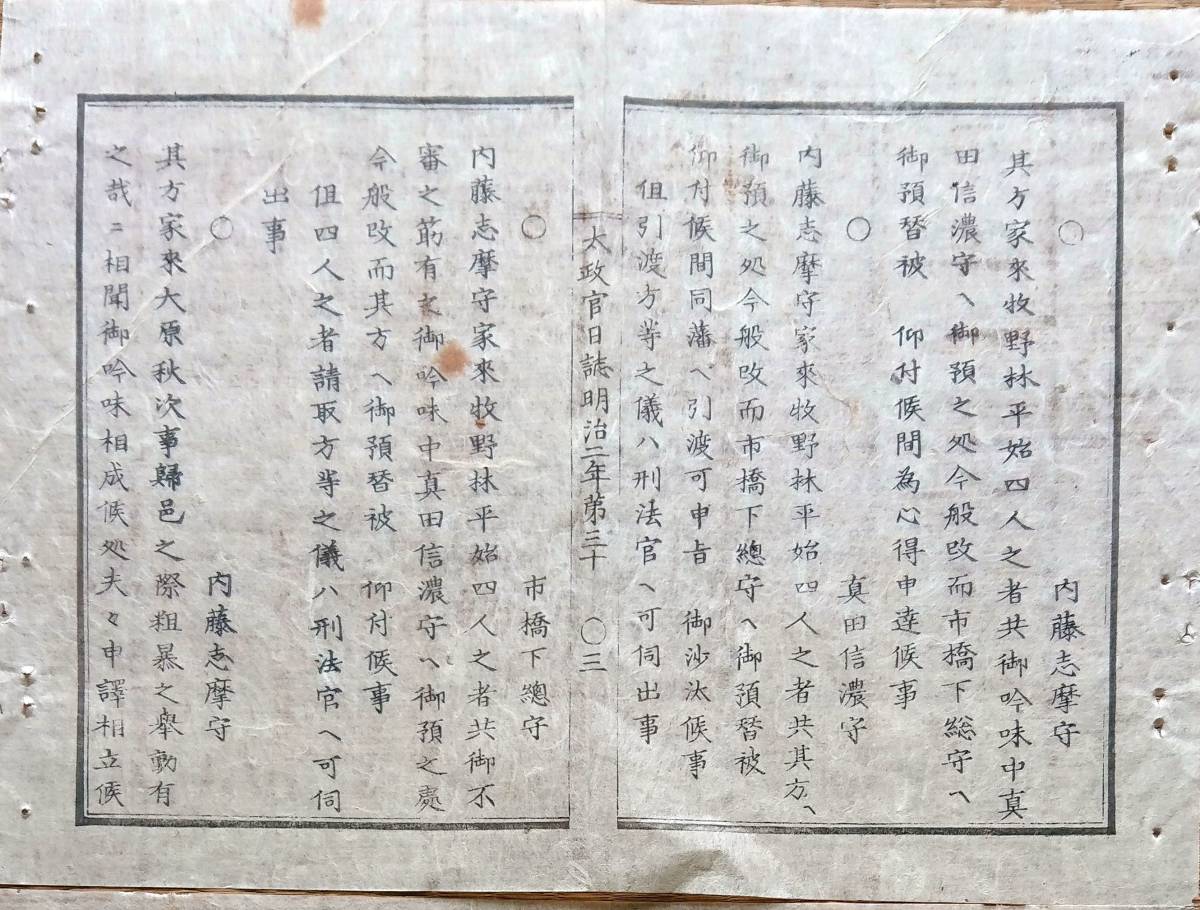 ○
内藤志摩守
其方家來牧野林平始四人之者共御吟味中真
田信濃守ヘ御預之処今般改而市橋下総守ヘ
御預替被 仰付候間為心得申達候事
○
真田信濃守
内藤志摩守家來牧野林平始四人之者共其方ヘ
御預之処今般改而市橋下總守ヘ御預替被
仰付候間同藩ヘ引渡可申旨 御沙汰候事
但引渡方等之儀ハ刑法官ヘ可伺出事
太政官日誌明治二年第三十 ○三
○
市橋下總守
内藤志摩守家來牧野林平始四人之者共御不
審之筋有之御吟味中真田信濃守ヘ御預之處
今般改而其方ヘ御預替被 仰付候事
但四人之者請取方等之儀ハ刑法官ヘ可伺
出事
○
内藤志摩守
其方家來大原秋次事歸邑之際粗暴之舉動有
之哉ニ相聞御吟味相成候処夫々申譯相立候